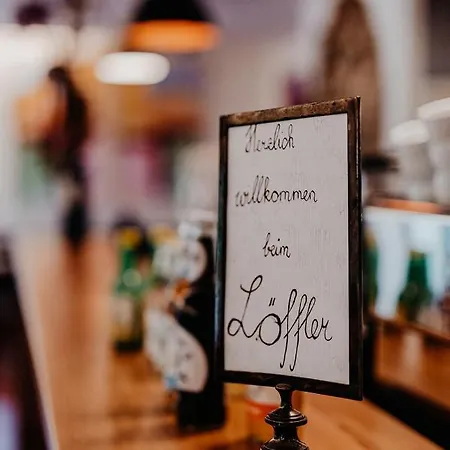 Herzlich
willkommen
beim
Löffler